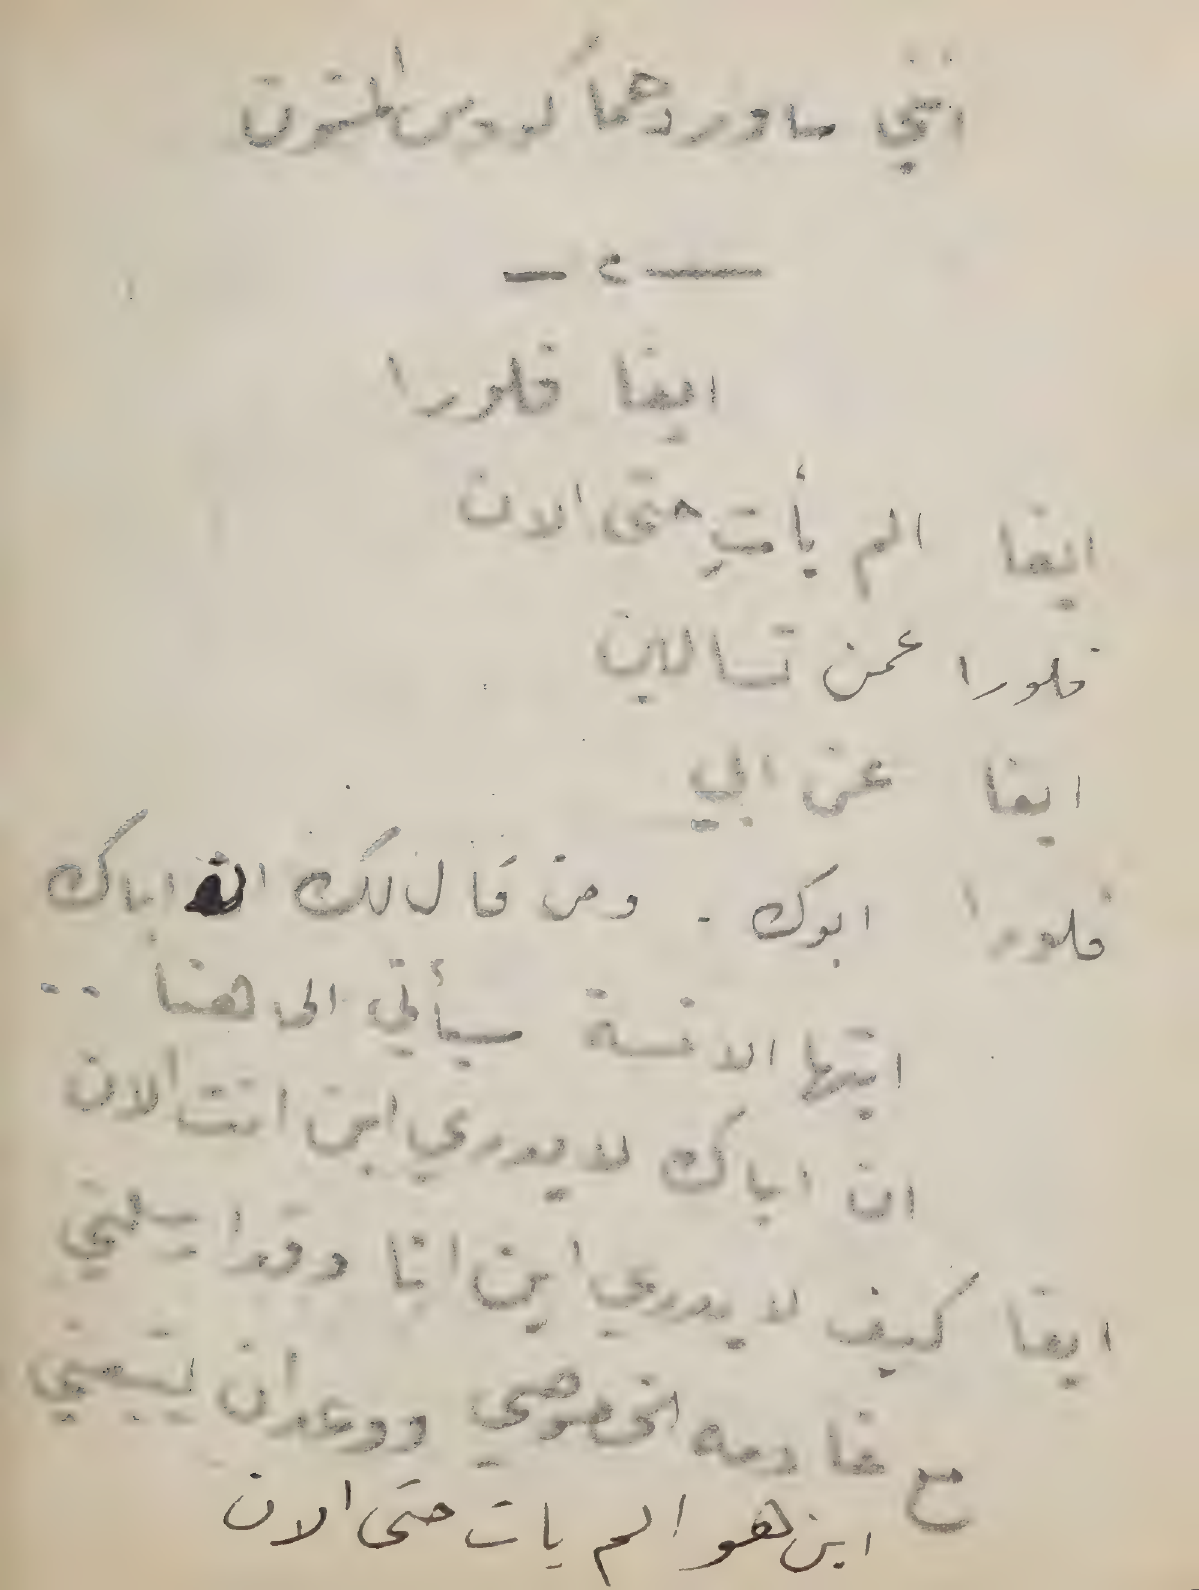 انني ساوردهما كووس المنون
— ٢ —
ايفا فلورا
ايفا الم يأتِ حتى الان
فلورا عمن تسالين
ايفا عن ابي
فلورا ابوك . ومن قال لك ان اباك
ايتها الانسة سيأتي الى هنا ..
ان اباك لا يدري اين انت الان
ايفا كيف لا يدري اين انا وقد ارسلني
مع خادمه الخصوصي ووعد ان يتبعني
اين هو الم يات حتى الان